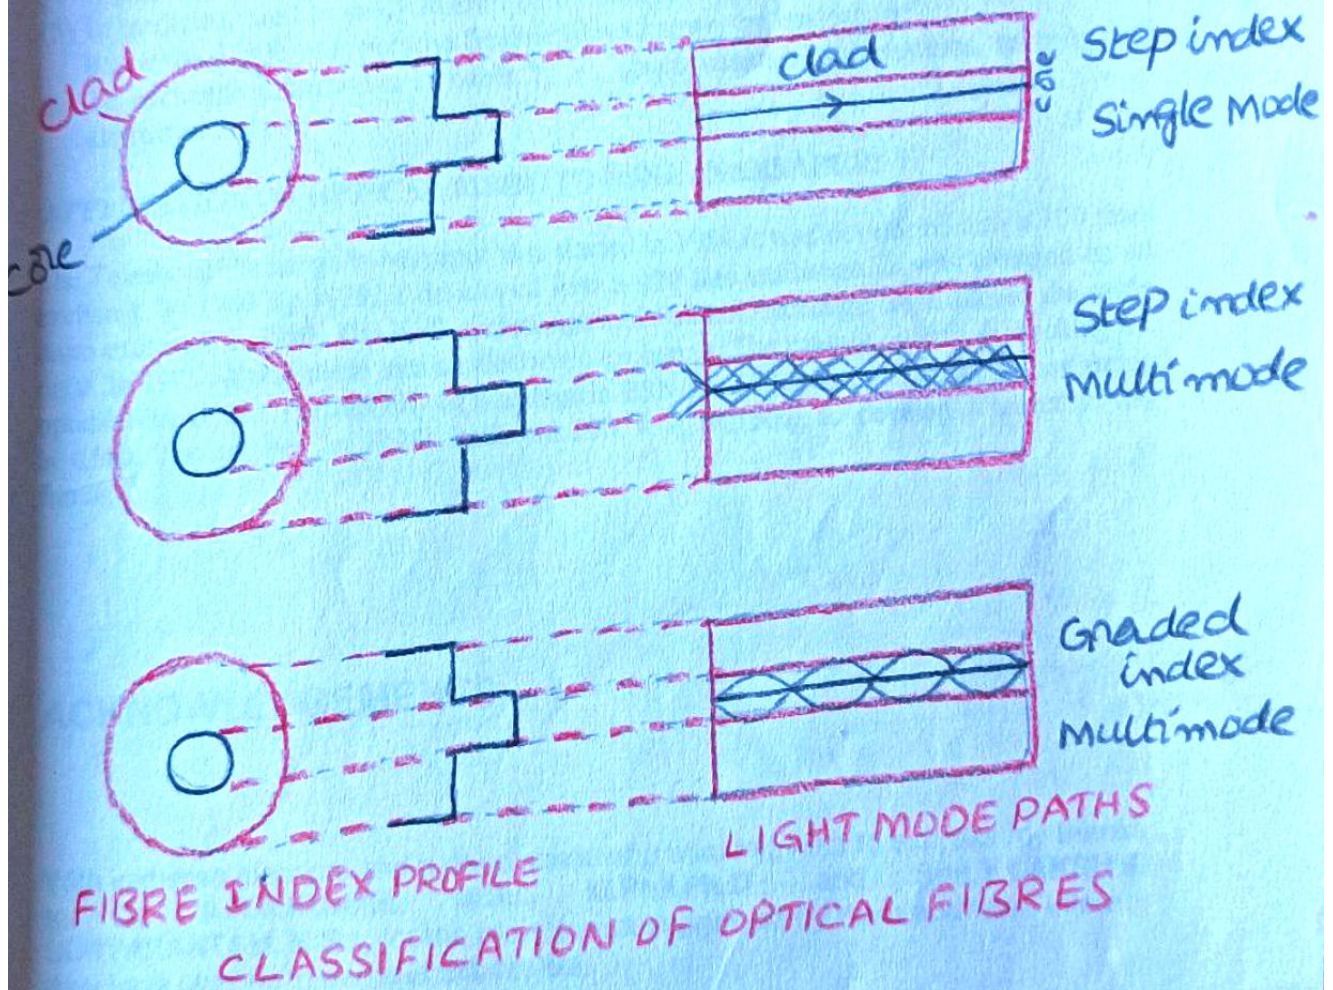 clad
core
clad
core
Step index
Single Mode
Step index
Multi mode
Graded
index
Multimode
LIGHT MODE PATHS
FIBRE INDEX PROFILE
CLASSIFICATION OF OPTICAL FIBRES